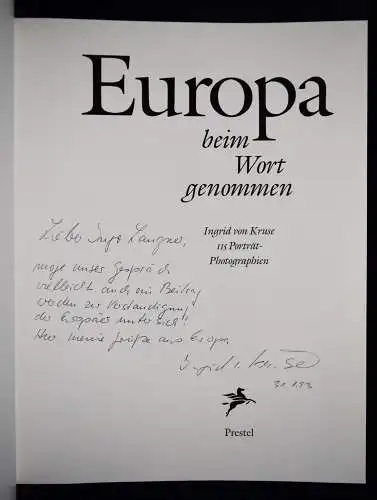 Europa
beim
Wort
genommen
Ingrid von Kruse
115 Porträt-
Photographien
Liebe Inge Langner,
möge unser Gespräch
vielleicht auch ein Beitrag
werden zur Verständigung
der Europäer unter sich!
meine Grüße aus Europa
Ingrid v. Kruse
Prestel